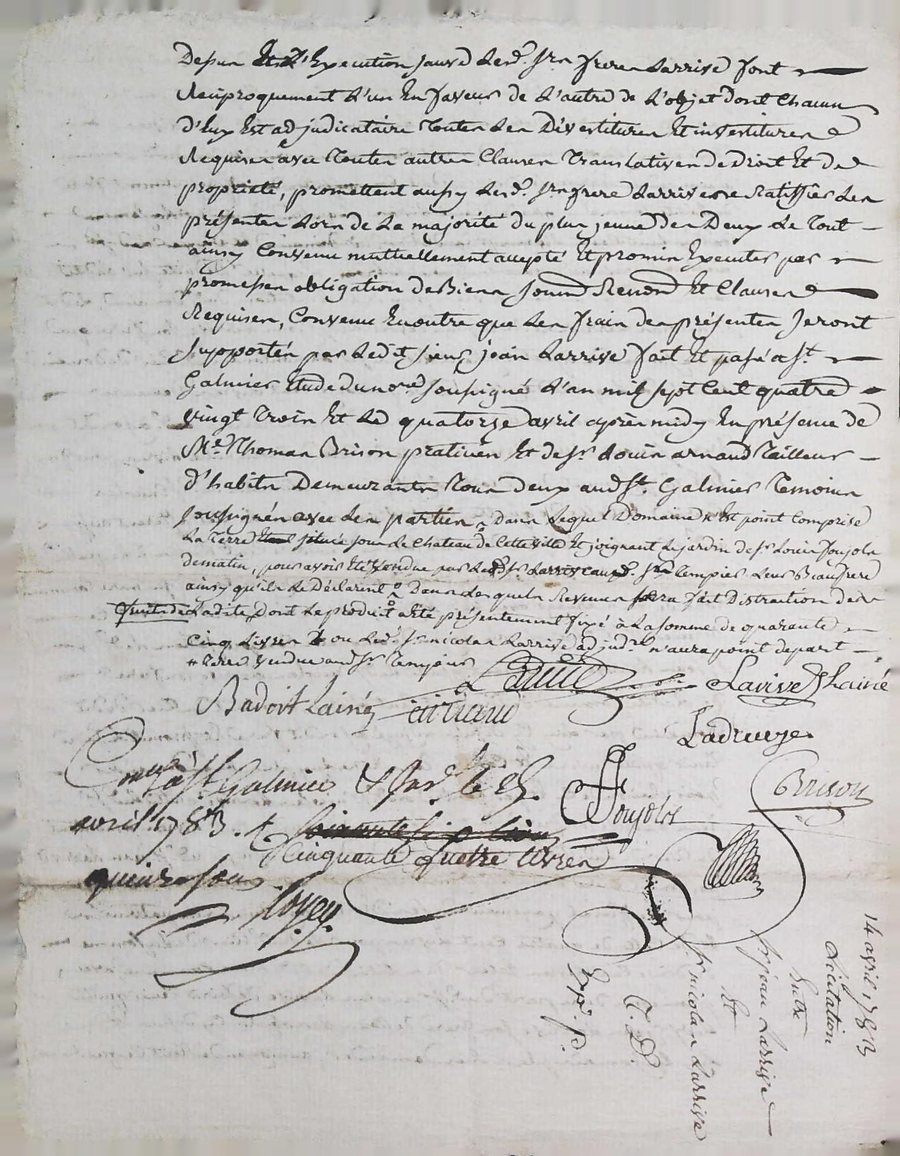 Depens Et d'Execution sauve Lesd. Srs freres Larrive font
Reciproquement L'un En faveur de L'autre de L'objet dont Chacun
d'Eux Est adjudicataire Toutes Les Divestitures Et investitures
Requises avec Toutes autres Clauses Translatives de Droit Et de
propriété, promettent aussy Lesd. Srs frere Larrive de Ratiffier Les
présentes Lors de La majorité du plus jeune des Deux Le Tout
ainsy Convenu mutuellement accepté Et promis Executer par
promesses obligation de Biens soum Renon Et Clauses
Requises, Convenu Enoutre que Les frais des présentes seront
supportés par Ledit sieur jean Larrive fait Et passé a St.
Galmier Etude du nore soussigné L'an mil sept Cent quatre
vingt Trois Et Le quatorze avril après midy En présence de
Me. Thomas Brison praticien Et de Sr. Louis arnaud Tailleur
d'habits Demeurants Tous deux aud. St. Galmier Temoins
soussignés avec Les parties dans Lequel Domaine n'Est point Comprise
La Terre située sous Le Chateau de Cette ville Et joignant Le jardin de Sr Louis Poujols
de matin, pour avoir Eté vendue par Lesd. Srs Larrive aud. Sr Tempier Leur Beaufrere
ainsy qu'ils Le Déclarent Dans Lesquels Revenus sera fait Distraction de
Ladite, Dont Le produit a Eté présentement fixé a La somme de quarante
Cinq Livres ou Led. Sr nicolas Larrive adjudre n'aura point de part
Terre vendue aud. Sr Tempier
Larrive Lainé
Badoit Lainé arnaud
Ladreuye
Brison
Poujols
a St Galmier le
avril 1783.
Cinquante quatre Livres
quinze sous
14 avril 1783
Licitation
Entre
Sr jean Larrive
Et
Sr nicolas Larrive